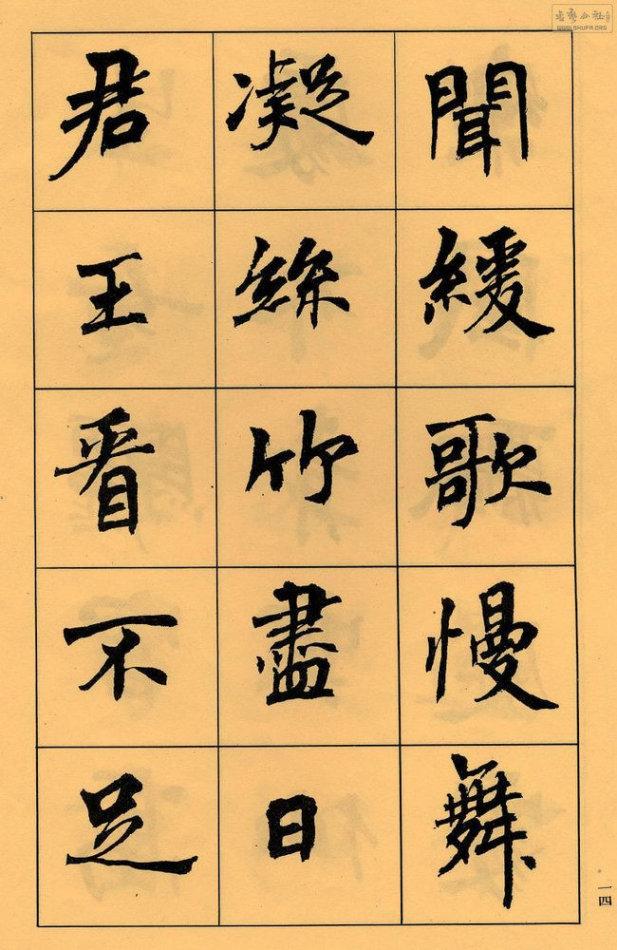 聞緩歌慢舞
凝絲竹盡日
君王看不足
一四
WWW.SHUFA.ORG